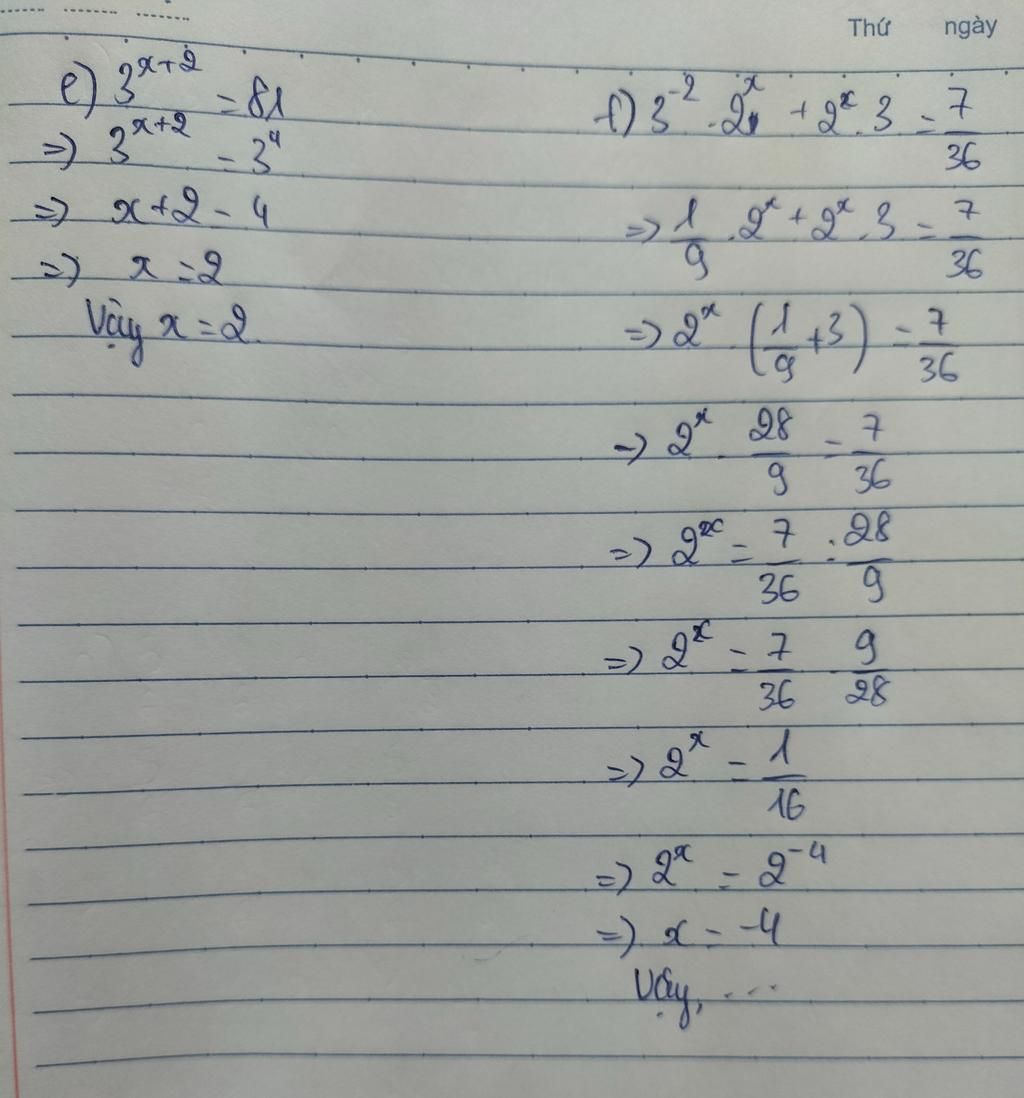 Thứ ngày
e) 3^{x+2} = 81
=) 3^{x+2} = 3^4
=) x+2 = 4
=) x = 2
Vậy x = 2.
f) 3^{-2} . 2^x + 2^x . 3 = 7/36
=) 1/9 . 2^x + 2^x . 3 = 7/36
=) 2^x . (1/9 + 3) = 7/36
=) 2^x . 28/9 = 7/36
=) 2^x = 7/36 : 28/9
=) 2^x = 7/36 . 9/28
=) 2^x = 1/16
=) 2^x = 2^{-4}
=) x = -4
Vậy, ...